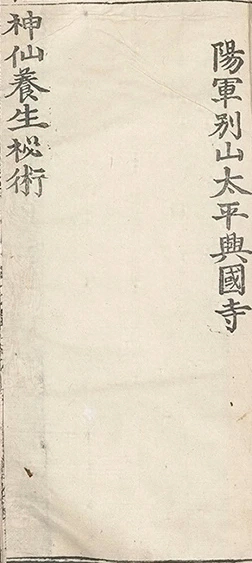 陽軍别山太平興國寺
神仙養生祕術